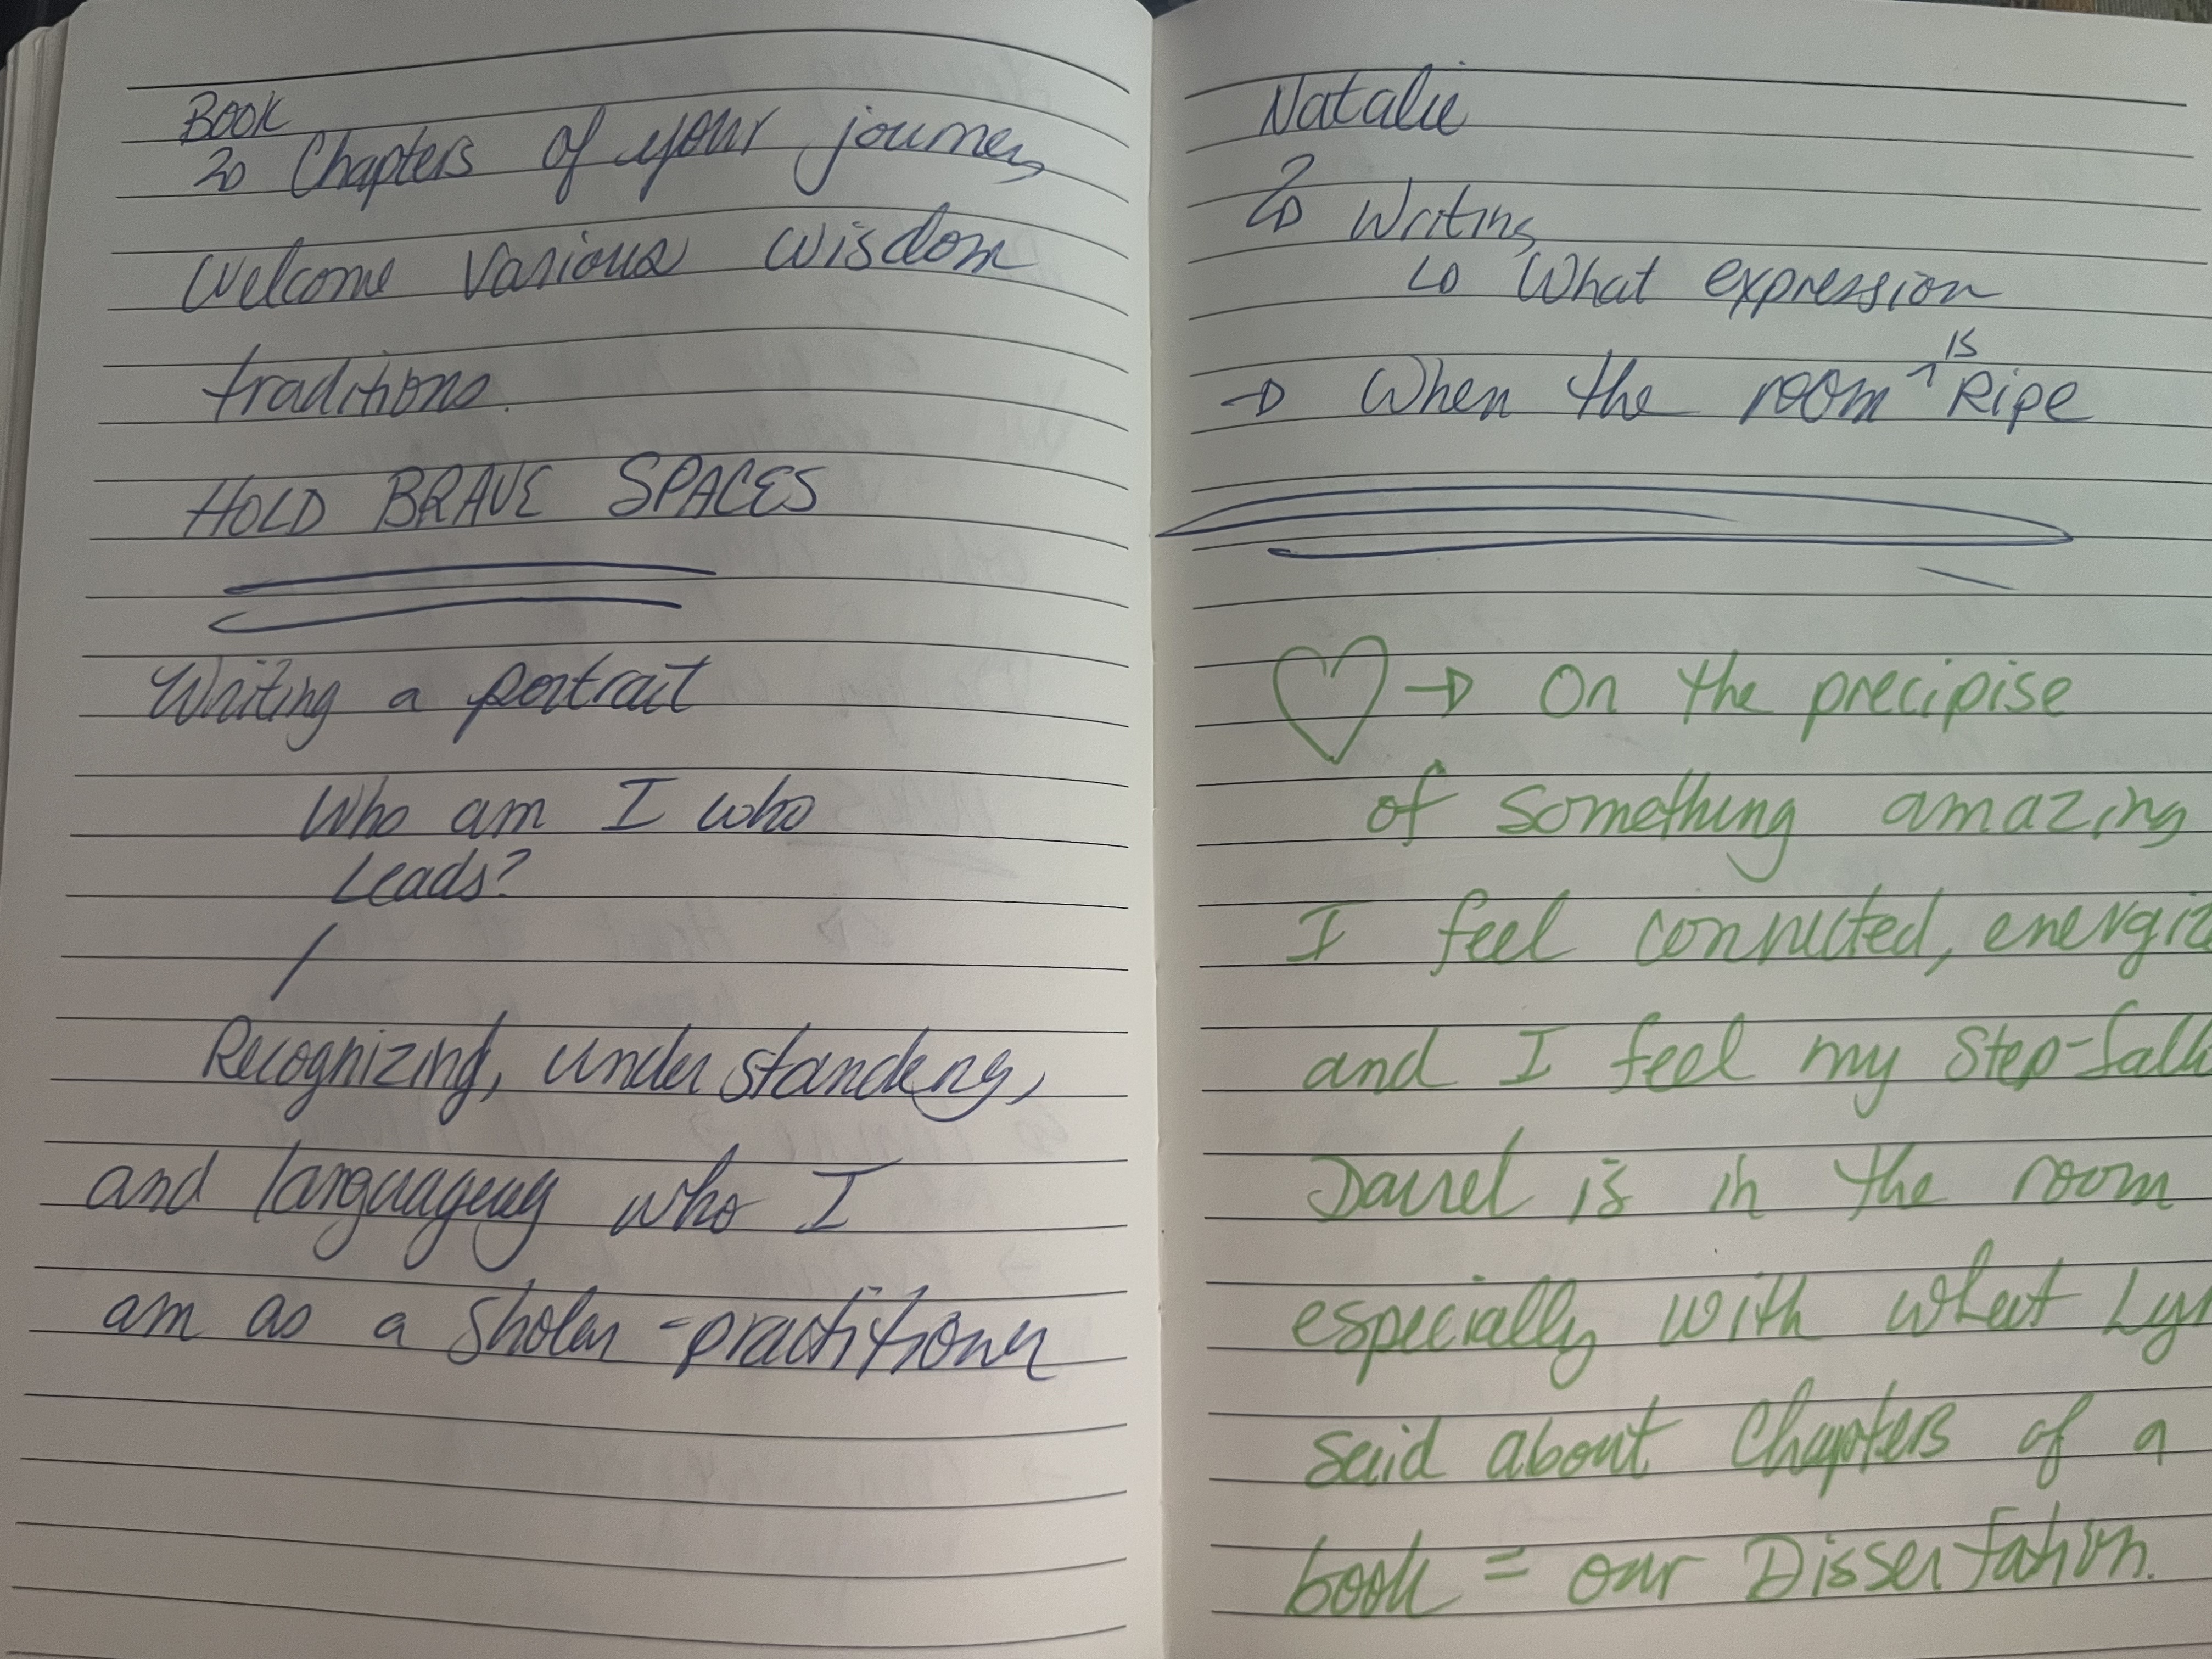 BOOK
Chapters of your journey
Welcome various wisdom
traditions.
HOLD BRAVE SPACES
Writing a portrait
Who am I who
Leads?
Recognizing, understanding,
and languageing who I
am as a sholar-practitioner
Natalie
Writing
What expression
is
→ When the room ^ Ripe
♡ → On the precipise
of something amazing
I feel connected,
and I feel my
Darrel is in the room
especially with what
said about Chapters of a
book = our Dissertation.